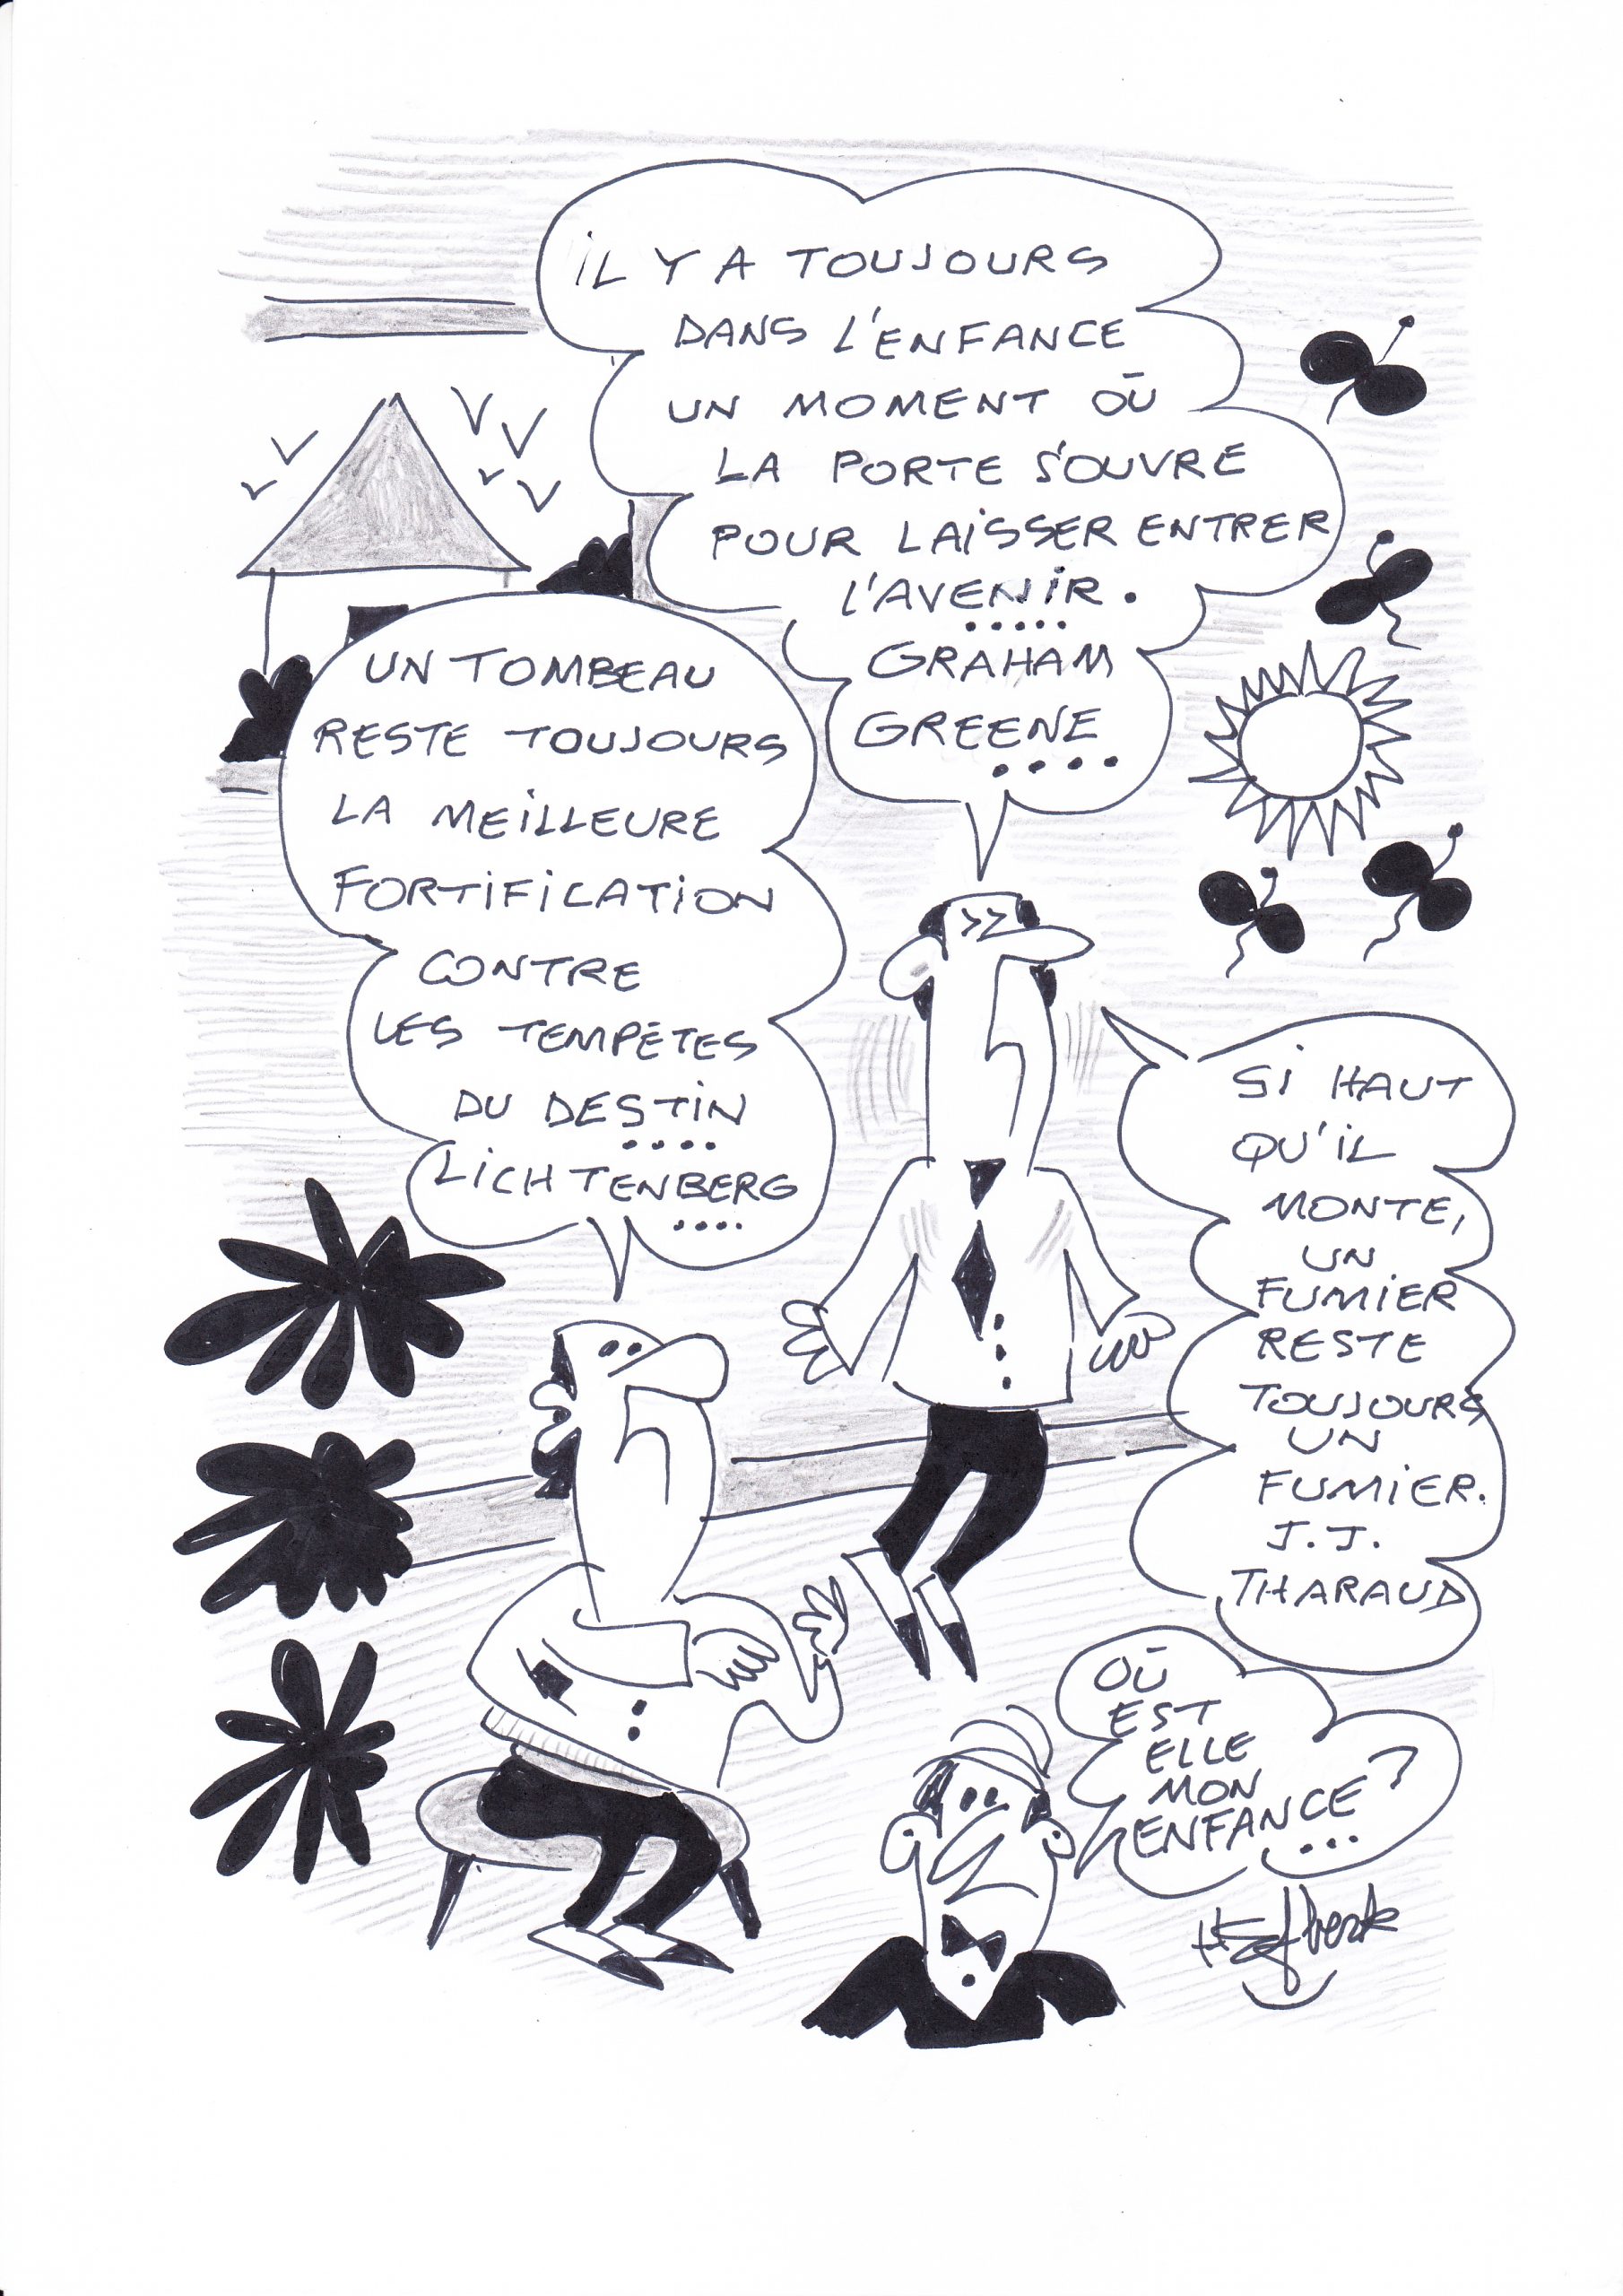 iL Y A TOUJOURS
DANS L'ENFANCE
UN MOMENT OÙ
LA PORTE S'OUVRE
POUR LAiSSER ENTRER
L'AVENiR.
GRAHAM
GREENE
....
UN TOMBEAU
RESTE TOUJOURS
LA MEiLLEURE
FORTiFiCATiON
CONTRE
LES TEMPÊTES
DU DESTiN
LiCHTENBERG
....
Si HAUT
QU'iL
MONTE,
UN
FUMiER
RESTE
TOUJOURS
UN
FUMiER.
J.J.
THARAUD
OÙ
EST
ELLE
MON
ENFANCE?
...